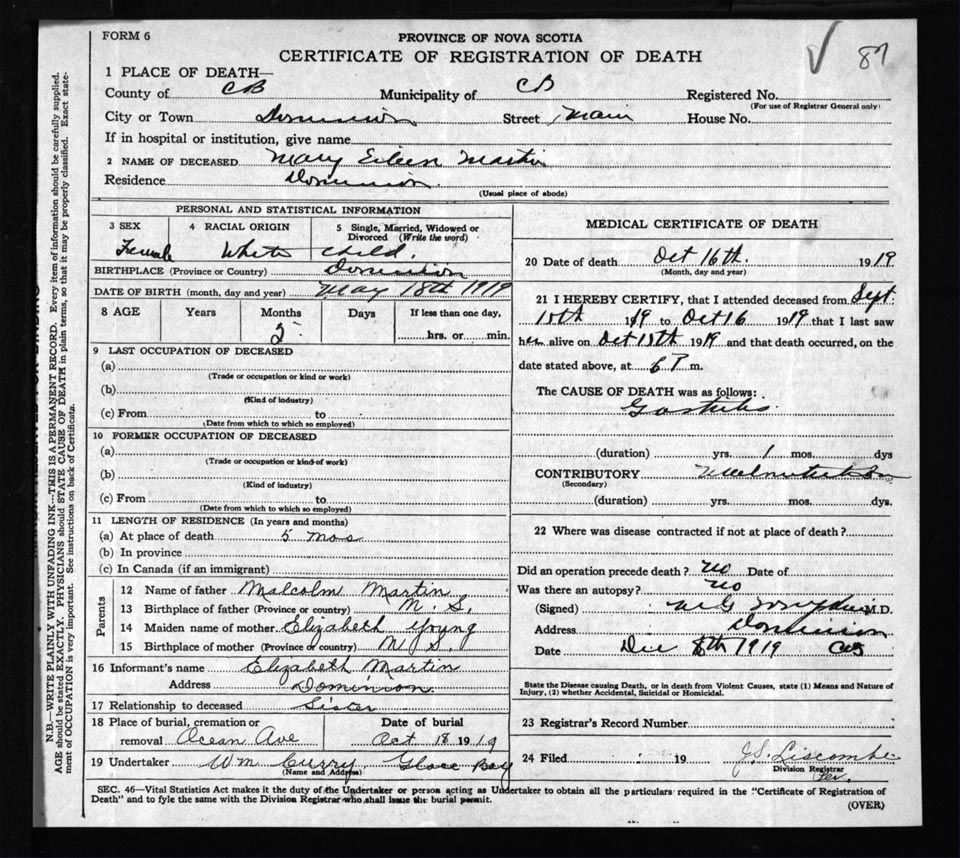 FORM 6
PROVINCE OF NOVA SCOTIA
CERTIFICATE OF REGISTRATION OF DEATH
87
1 PLACE OF DEATH—
County of CB Municipality of CB Registered No.
(For use of Registrar General only)
City or Town Dominion Street Main House No.
If in hospital or institution, give name
2 NAME OF DECEASED Mary Eileen Martin
Residence Dominion.
(Usual place of abode)
PERSONAL AND STATISTICAL INFORMATION
3 SEX 4 RACIAL ORIGIN 5 Single, Married, Widowed or
Divorced (Write the word)
Female White Child.
BIRTHPLACE (Province or Country) Dominion
DATE OF BIRTH (month, day and year) May 18th 1919
8 AGE Years Months Days If less than one day,
5 hrs. or min.
9 LAST OCCUPATION OF DECEASED
(a)
(Trade or occupation or kind or work)
(b)
(Kind of industry)
(c) From to
(Date from which to which so employed)
10 FORMER OCCUPATION OF DECEASED
(a)
(Trade or occupation or kind of work)
(b)
(Kind of industry)
(c) From to
(Date from which to which so employed)
11 LENGTH OF RESIDENCE (In years and months)
(a) At place of death 5 mos
(b) In province
(c) In Canada (if an immigrant)
Parents
12 Name of father Malcolm Martin
13 Birthplace of father (Province or country) N. S.
14 Maiden name of mother Elizabeth Young
15 Birthplace of mother (Province or country) N S.
16 Informant's name Elizabeth Martin
Address Dominion.
17 Relationship to deceased Sister
18 Place of burial, cremation or Date of burial
removal Ocean Ave Oct 18 1919
19 Undertaker Wm Curry, Glace Bay
(Name and Address)
MEDICAL CERTIFICATE OF DEATH
20 Date of death Oct 16th. 1919
(Month, day and year)
21 I HEREBY CERTIFY, that I attended deceased from Sept.
1919 to Oct 16 1919 that I last saw
her alive on Oct 1919 and that death occurred, on the
date stated above, at 6 P m.
The CAUSE OF DEATH was as follows:
Gastritis.
(duration) yrs. 1 mos. dys
CONTRIBUTORY Malnutrition
(Secondary)
(duration) yrs. mos. dys.
22 Where was disease contracted if not at place of death?
Did an operation precede death? No Date of
Was there an autopsy? No
(Signed) M.D.
Address Dominion
Date Dec 8th 1919 CB
State the Disease causing Death, or in death from Violent Causes, state (1) Means and Nature of
Injury, (2) whether Accidental, Suicidal or Homicidal.
23 Registrar's Record Number
24 Filed 19 J.S. Liscombe
Division Registrar
SEC. 46—Vital Statistics Act makes it the duty of the Undertaker or person acting as Undertaker to obtain all the particulars required in the "Certificate of Registration of
Death" and to fyle the same with the Division Registrar who shall issue the burial permit.
(OVER)
N.B.—WRITE PLAINLY WITH UNFADING INK—THIS IS A PERMANENT RECORD. Every item of information should be carefully supplied.
AGE should be stated EXACTLY. PHYSICIANS should STATE CAUSE OF DEATH in plain terms, so that it may be properly classified. Exact state-
ment of OCCUPATION is very important. See instructions on back of Certificate.